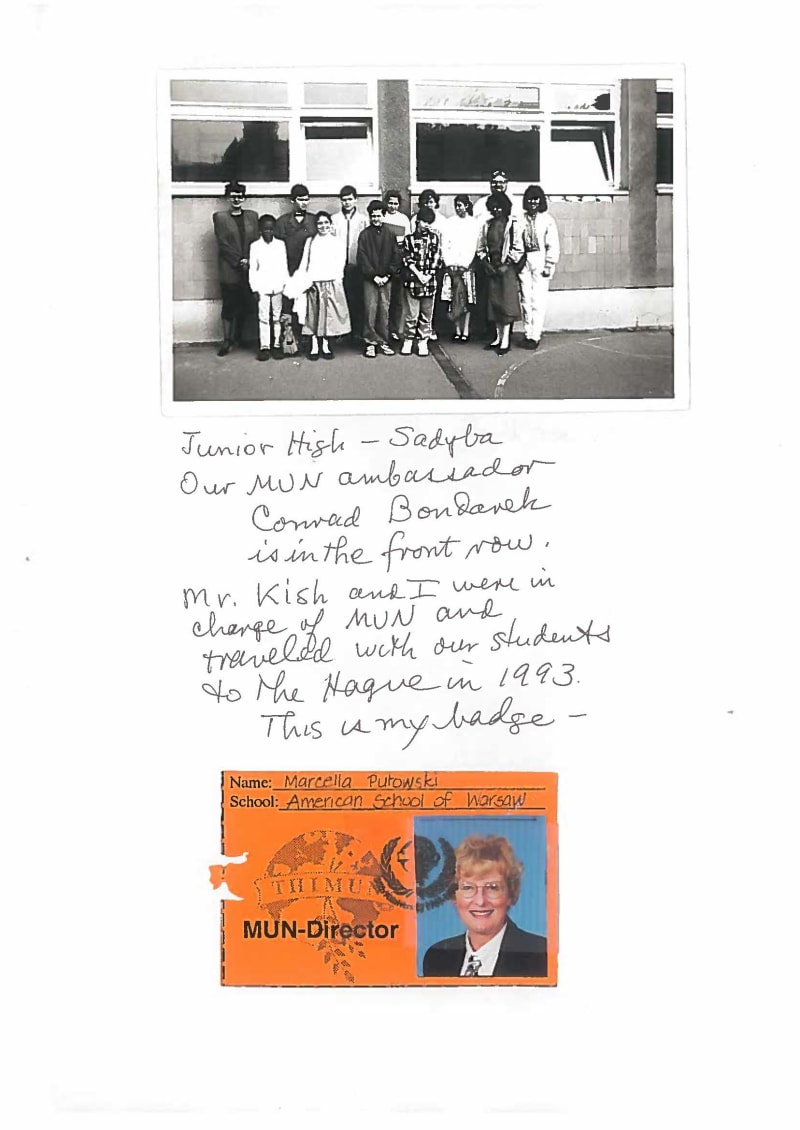 Junior High – Sadyba
Our MUN ambassador
Conrad Bondarek
is in the front row.
Mr. Kish and I were in
charge of MUN and
traveled with our students
to The Hague in 1993.
This is my badge –
Name: Marcella Putowski
School: American School of Warsaw
THIMUN
MUN-Director